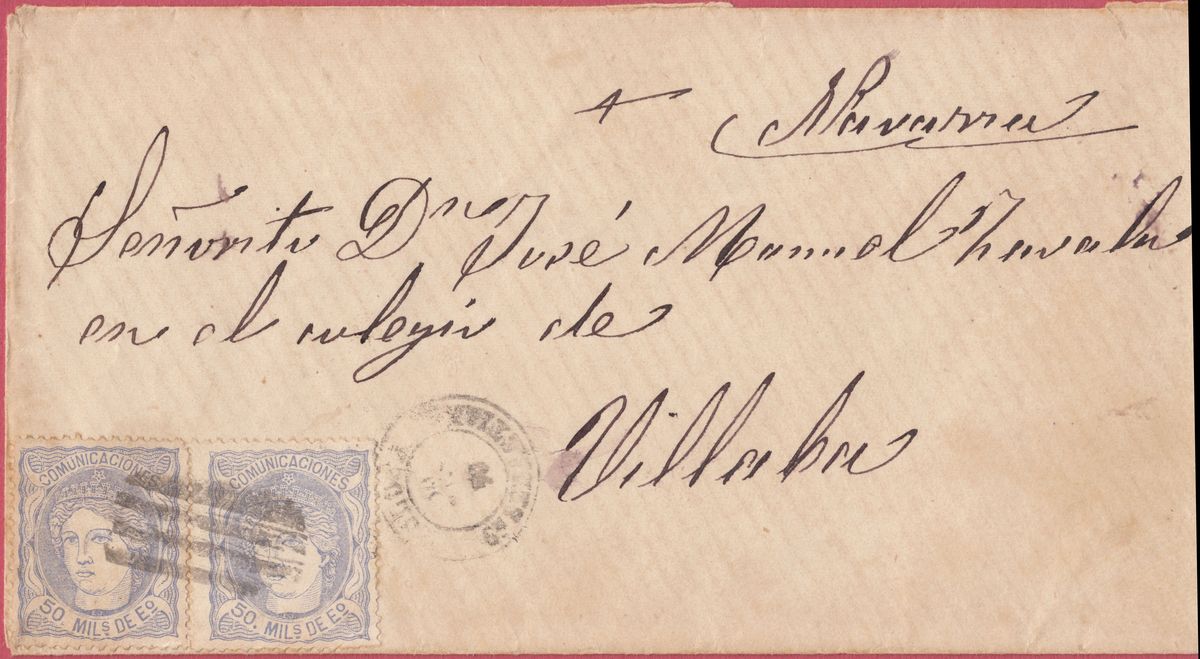 Navarra
Señorito Dn José Manuel Zavala
en el colegio de
Villaba
COMUNICACIONES
50. MILS DE Eo.
COMUNICACIONES
50. MILS DE Eo.